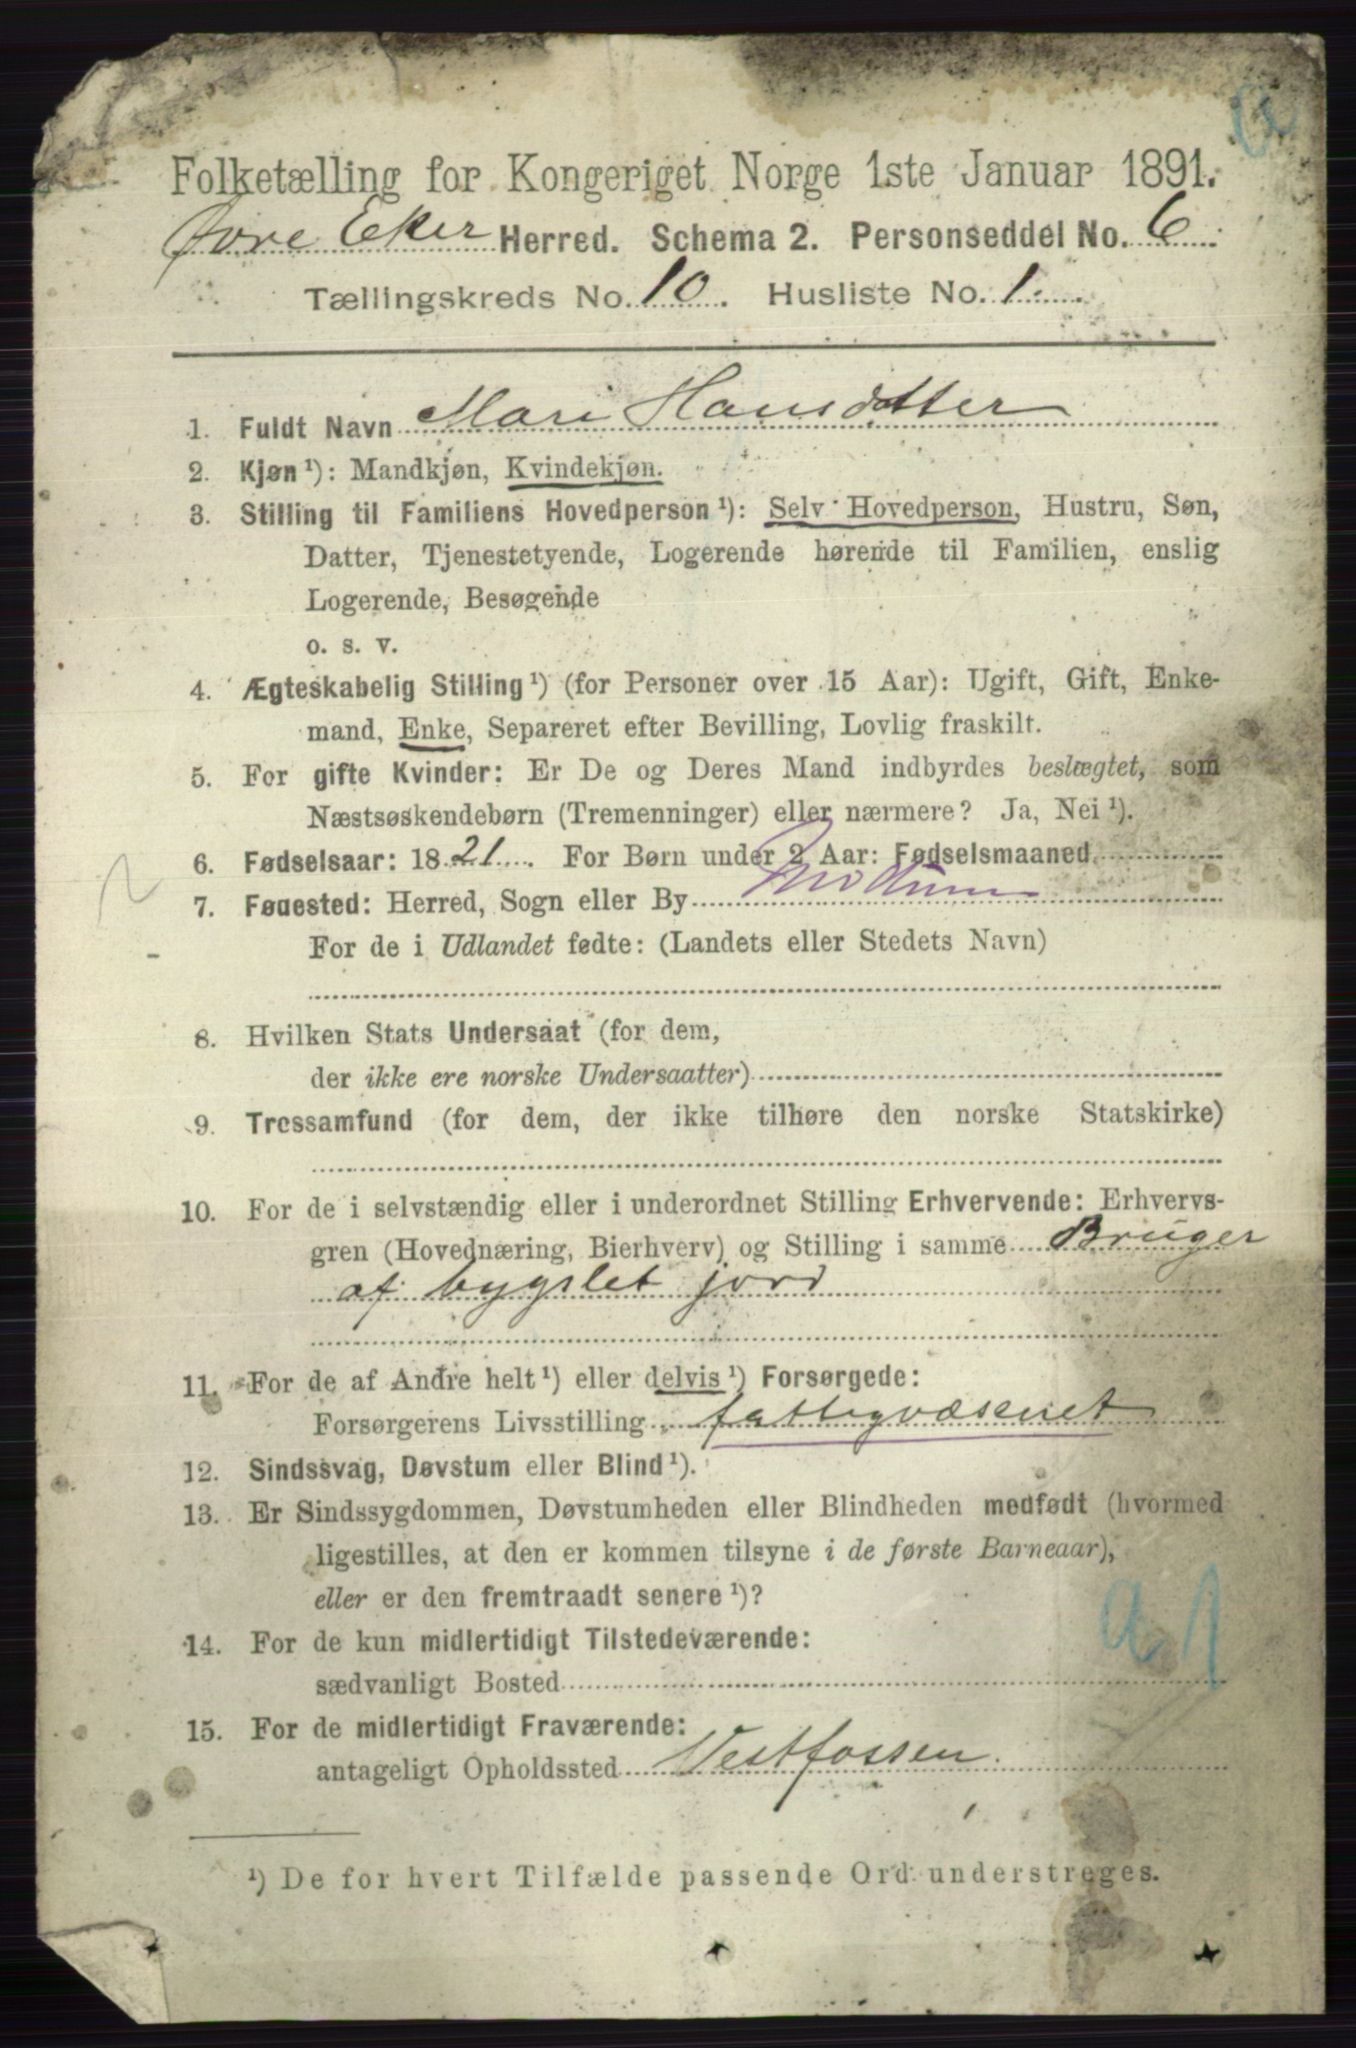 Folketælling for Kongeriget Norge 1ste Januar 1891.
Øvre Eker Herred. Schema 2. Personseddel No. 6
Tællingskreds No. 10. Husliste No. 1.
1. Fuldt Navn Mari Hansdatter
2. Kjøn ¹): Mandkjøn, Kvindekjøn.
3. Stilling til Familiens Hovedperson ¹): Selv Hovedperson, Hustru, Søn,
Datter, Tjenestetyende, Logerende hørende til Familien, enslig
Logerende, Besøgende
o. s. v.
4. Ægteskabelig Stilling ¹) (for Personer over 15 Aar): Ugift, Gift, Enke-
mand, Enke, Separeret efter Bevilling, Lovlig fraskilt.
5. For gifte Kvinder: Er De og Deres Mand indbyrdes beslægtet, som
Næstsøskendebørn (Tremenninger) eller nærmere? Ja, Nei ¹).
6. Fødselsaar: 1821. For Børn under 2 Aar: Fødselsmaaned
7. Fødested: Herred, Sogn eller By Modum
For de i Udlandet fødte: (Landets eller Stedets Navn)
8. Hvilken Stats Undersaat (for dem,
der ikke ere norske Undersaatter)
9. Trossamfund (for dem, der ikke tilhøre den norske Statskirke)
10. For de i selvstændig eller i underordnet Stilling Erhvervende: Erhvervs-
gren (Hovednæring, Bierhverv) og Stilling i samme Bruger
af bygslet jord
11. For de af Andre helt ¹) eller delvis ¹) Forsørgede:
Forsørgerens Livsstilling fattigvæsenet
12. Sindssvag, Døvstum eller Blind ¹).
13. Er Sindssygdommen, Døvstumheden eller Blindheden medfødt (hvormed
ligestilles, at den er kommen tilsyne i de første Barneaar),
eller er den fremtraadt senere ¹)?
a 1
14. For de kun midlertidigt Tilstedeværende:
sædvanligt Bosted
15. For de midlertidigt Fraværende:
antageligt Opholdssted Vestfossen.
¹) De for hvert Tilfælde passende Ord understreges.